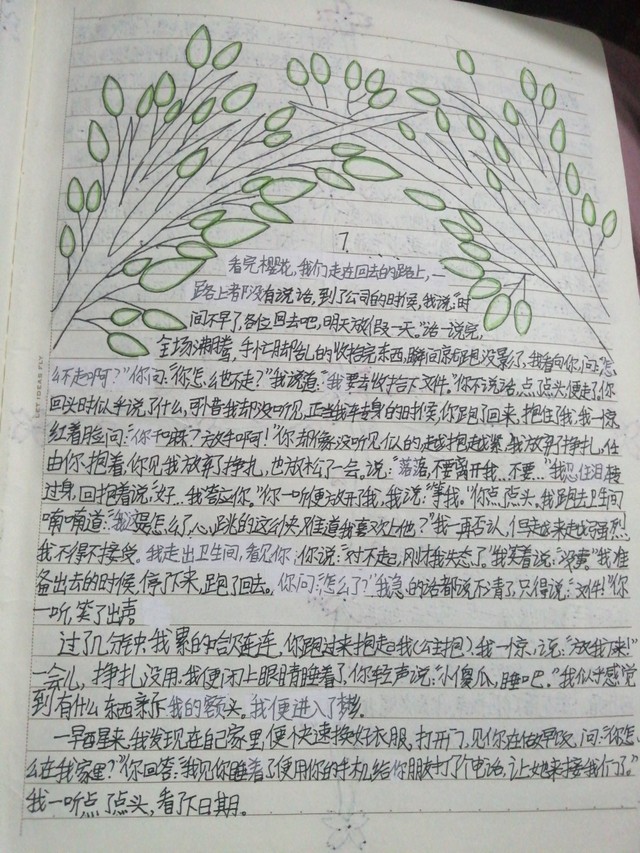 7.
看完樱花,我们走在回去的路上,一
路上都没有说话,到了公司的时候,我说:"时
间不早了,各位回去吧,明天放假一天。"话一说完,
全场沸腾着,手忙脚乱的收拾完东西,瞬间席跑没影了,我看向你,问:"怎
么不走啊?"你问:"你怎么也不走?"我说道:"我要去收拾下文件。"你不说话,点点头便走了,你
回头时似乎说了什么,可惜我却没听见,正当我转身的时候,你跑了回来,抱住了我,我一惊,
红着脸问:"你干嘛?放开啊!"你却像没听见似的越抱越紧,我放弃了挣扎,任
由你抱着,你见我放弃了挣扎,也放松了一会。说:"落落,不要离开我…不要…"我忍住泪转
过身,回抱着说:"好…我答应你。"你一听便放开了我,我说:"等我。"你点点头。我跑去卫生间
喃喃道:"我这是怎么了,心跳的这么快,难道我喜欢上他?"我一再否认,但越来越强烈,
我不得不接受。我走出卫生间,看见你,你说:"对不起,刚才我失态了。"我笑着说:"没黄"我准
备出去的时候,停了下来,跑了回去。你问:"怎么了?"我急的话都说不清了,只得说:"文件!"你
一听,笑了出声
过了几分钟,我累的哈欠连连,你跑过来抱起我(公主抱),我一惊,说:"放我下来!"
一会儿,挣扎没用,我便闭上眼睛睡着了,你轻声说:"小傻瓜,睡吧。"我似乎感觉
到有什么东西亲了我的额头。我便进入了梦乡。
一早醒来,我发现在自己家里,便快速换好衣服,打开门,见你在做早饭,问:"你怎
么在我家里?"你回答:"我见你睡着了便用你的手机给你朋友打了个电话,让她来接我们了。"
我一听点了点头,看了下日期。
LET IDEAS FLY